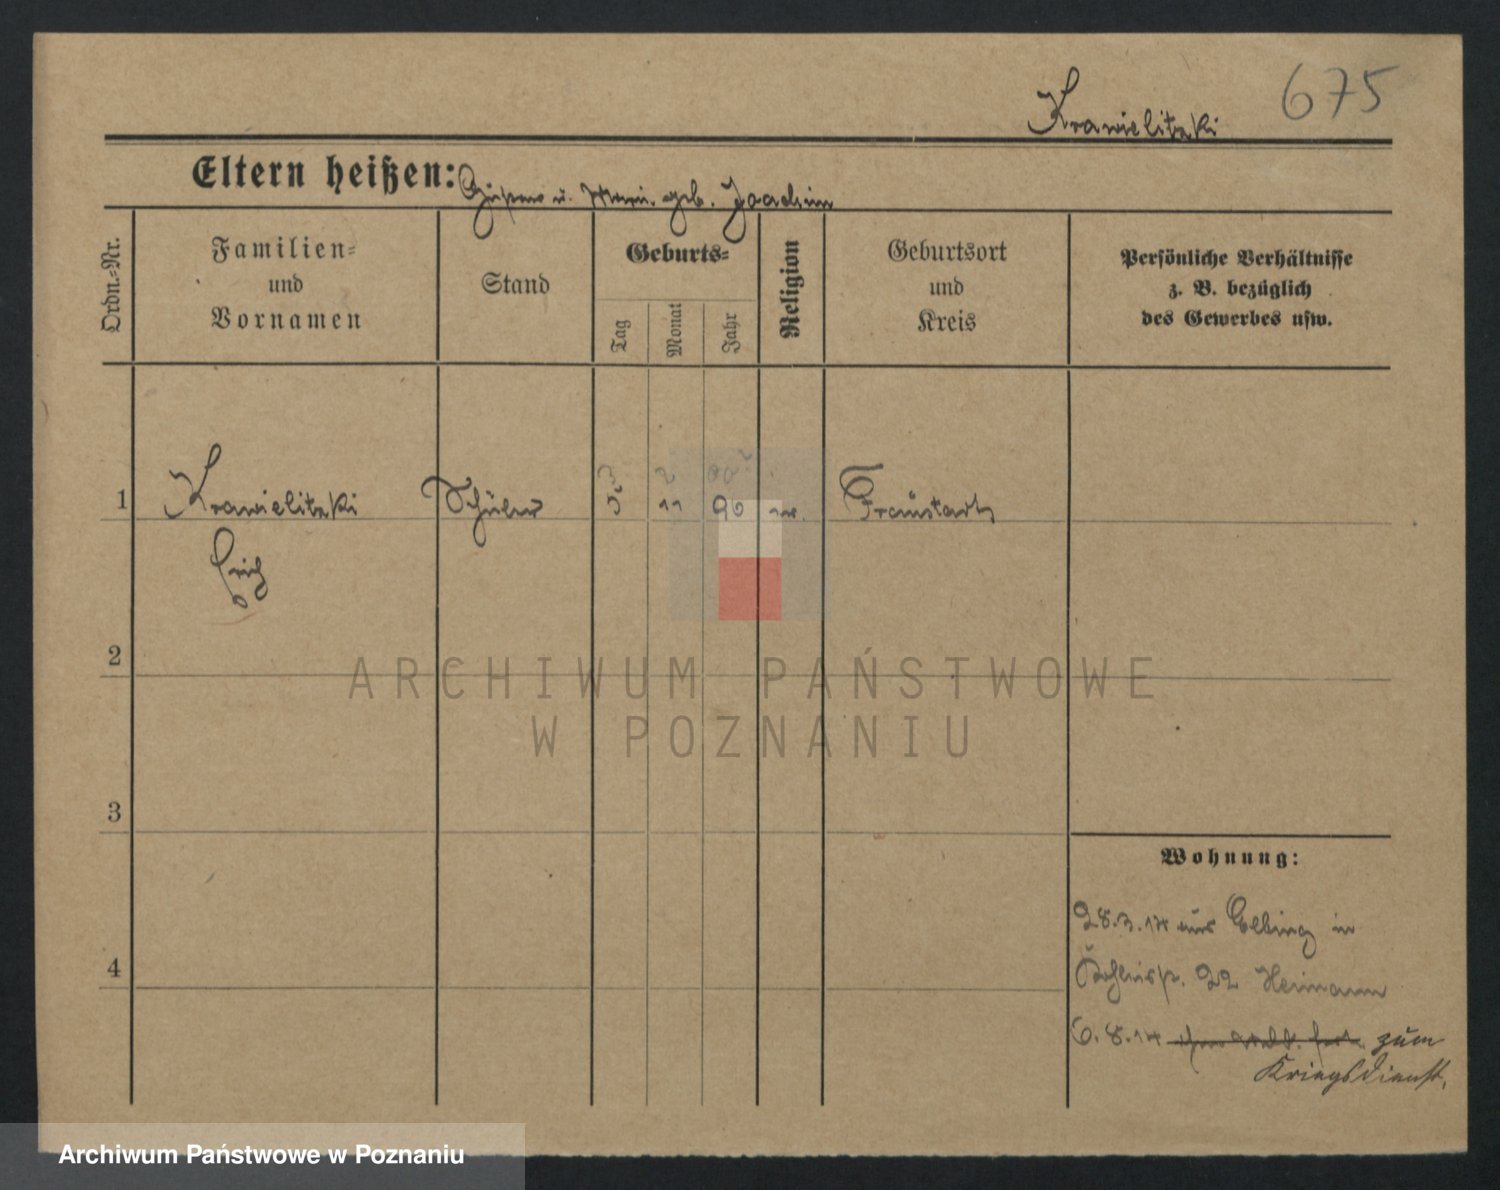 675
Krawielitzki
Eltern heißen: Gustav u. Marie geb. Joachim
Ordn.-Nr.
Familien-
und
Vornamen
Stand
Geburts-
Tag
Monat
Jahr
Religion
Geburtsort
und
Kreis
Persönliche Verhältnisse
z. B. bezüglich
des Gewerbes usw.
1 Krawielitzki Schüler 3 11 90 Fraustadt
Erich
2
ARCHIWUM PAŃSTWOWE
W POZNANIU
3
Wohnung:
28.3.14 aus Elbing in
22 Heimann
4
6.8.14 zum
Kriegsdienst.
Archiwum Państwowe w Poznaniu